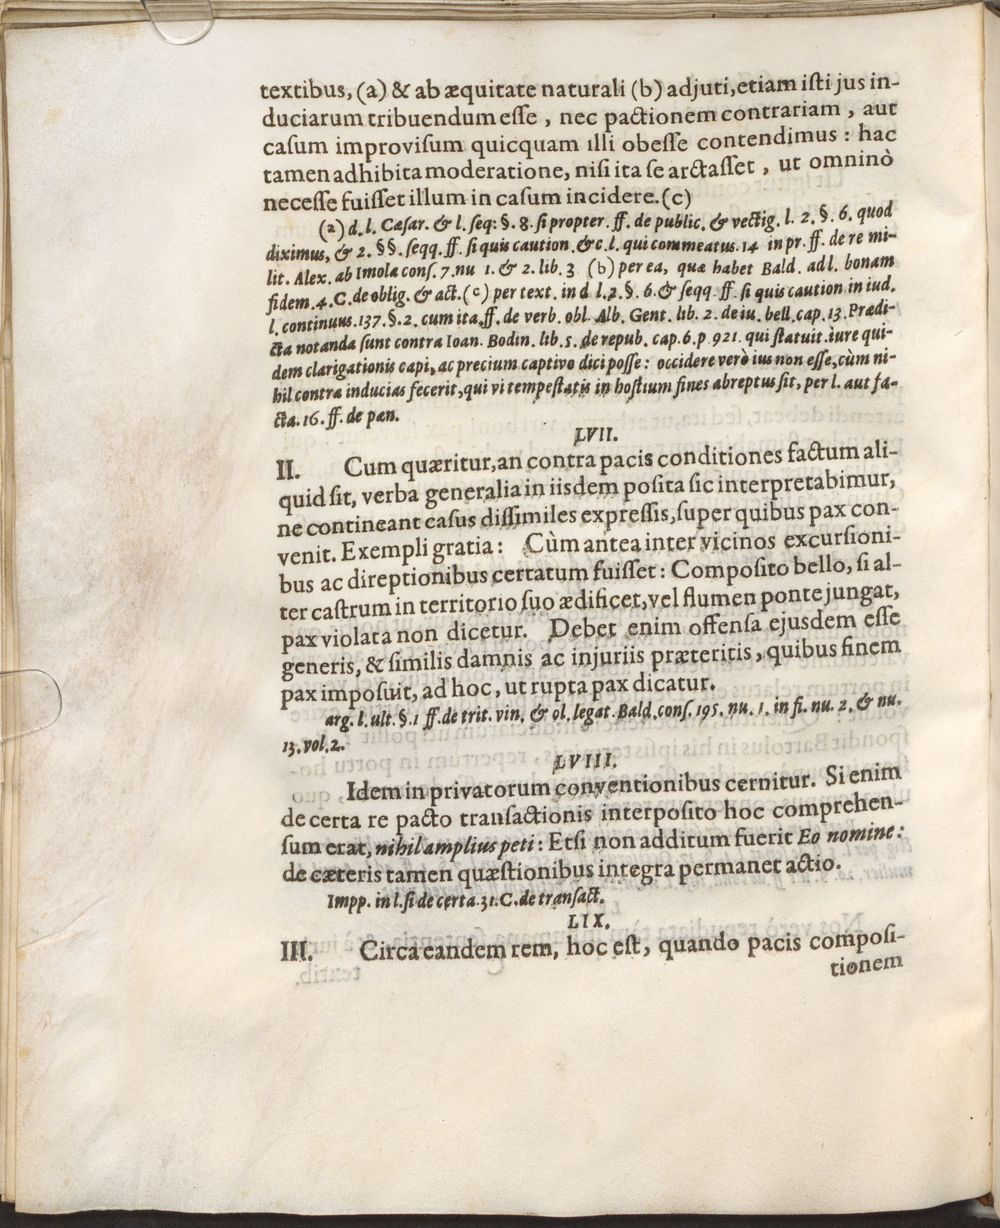 textibus, (a) & ab æquitate naturali (b) adjuti, etiam isti jus in-
duciarum tribuendum esse, nec pactionem contrariam, aut
casum improvisum quicquam illi obesse contendimus: hac
tamen adhibita moderatione, nisi ita se arctasset, ut omninò
necesse fuisset illum in casum incidere. (c)
(a) d. l. Cæsar. & l. seq: §. 8. si propter. ff. de public. & vectig. l. 2. §. 6. quod
diximus, & 2. §§. seqq. ff. si quis caution. & c. l. qui commeatus. 14 in pr. ff. de re mi-
lit. Alex. ab Imola cons. 7. nu 1. & 2. lib. 3 (b) per ea, quæ habet Bald. ad l. bonam
fidem. 4. C. de oblig. & act. (c) per text. in d l. 2. §. 6. & seqq. ff. si quis caution in iud.
l. continuus. 137. §. 2. cum ita. ff. de verb. obl. Alb. Gent. lib. 2. de iu. bell. cap. 13. Prædi-
cta notanda sunt contra Ioan. Bodin. lib. 5. de repub. cap. 6. p 921. qui statuit. iure qui-
dem clarigationis capi, ac precium captivo dici posse: occidere verò ius non esse, cùm ni-
hil contra inducias fecerit, qui vi tempestatis in hostium fines abreptus sit, per l. aut fa-
cta. 16. ff. de pœn.
LVII.
II. Cum quæritur, an contra pacis conditiones factum ali-
quid sit, verba generalia in iisdem posita sic interpretabimur,
ne contineant casus dissimiles expressis, super quibus pax con-
venit. Exempli gratia: Cùm antea inter vicinos excursioni-
bus ac direptionibus certatum fuisset: Composito bello, si al-
ter castrum in territorio suo ædificet, vel flumen ponte jungat,
pax violata non dicetur. Debet enim offensa ejusdem esse
generis, & similis damnis ac injuriis præteritis, quibus finem
pax imposuit, ad hoc, ut rupta pax dicatur.
arg. l. ult. §. 1 ff. de trit. vin. & ol. legat. Bald. cons. 195. nu. 1. in fi. nu. 2. & nu.
13. vol. 2.
LVIII.
Idem in privatorum conventionibus cernitur. Si enim
de certa re pacto transactionis interposito hoc comprehen-
sum erat, nihil amplius peti: Etsi non additum fuerit Eo nomine:
de cæteris tamen quæstionibus integra permanet actio.
Impp. in l. si de certa. 31. C. de transact.
LIX.
III. Circa eandem rem, hoc est, quando pacis composi-
tionem